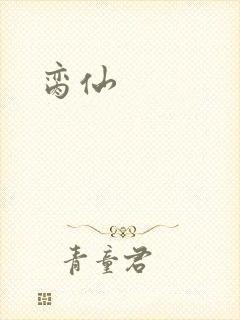 脔仙
青童君